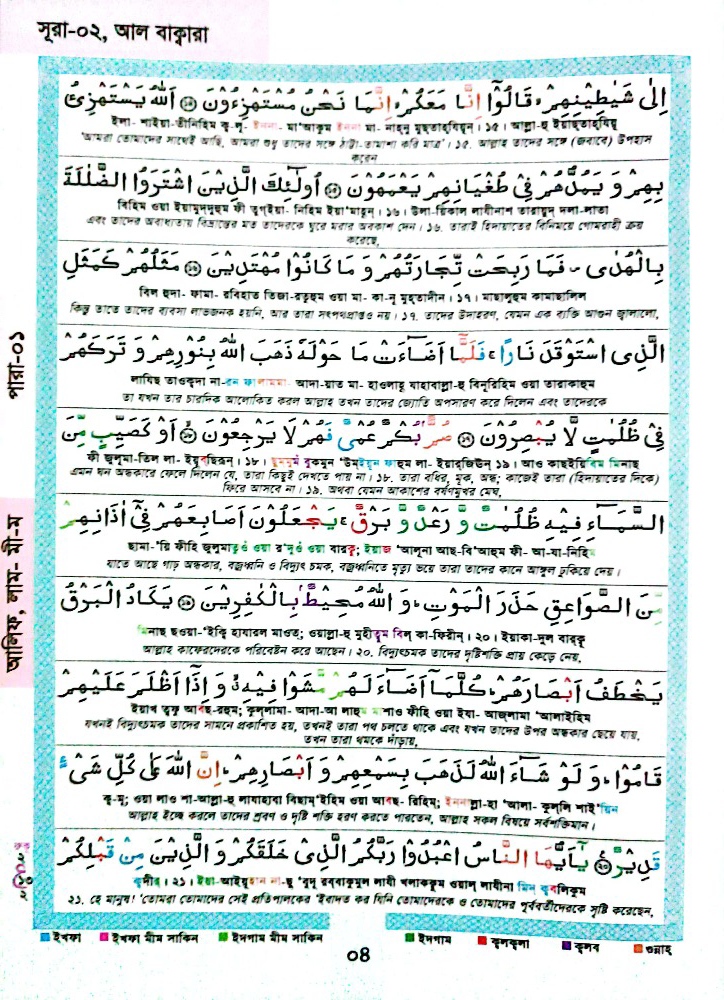 সূরা-০২, আল বাক্বারা
اِلٰى شَيٰطِيْنِهِمْ ۙ قَالُوْٓا اِنَّا مَعَكُمْ ۙ اِنَّمَا نَحْنُ مُسْتَهْزِءُوْنَ ۝۱۴ اَللّٰهُ يَسْتَهْزِئُ
ইলা- শাইয়া-তীনিহিম ক্ব-লূ- ইন্না- মা'আকুম ইন্নামা- নাহ্নু মুছতাহ্যিয়ূন্। ১৫। আল্লা-হু ইয়াছ্তাহ্যিয়ু
'আমরা তোমাদের সাথেই আছি, আমরা শুধু তাদের সঙ্গে ঠাট্টা-তামাশা করি মাত্র'। ১৫. আল্লাহ তাদের সঙ্গে (জবাবে) উপহাস
করেন
بِهِمْ وَ يَمُدُّهُمْ فِيْ طُغْيَانِهِمْ يَعْمَهُوْنَ ۝۱۵ اُولٰٓئِكَ الَّذِيْنَ اشْتَرَوُا الضَّلٰلَةَ
বিহিম ওয়া ইয়ামুদ্দুহুম ফী তুগ্ইয়া- নিহিম ইয়া'মাহূন্। ১৬। উলা-য়িকাল লাযীনাশ তারায়ুদ্ দলা-লাতা
এবং তাদের অবাধ্যতায় বিভ্রান্তের মত তাদেরকে ঘুরে মরার অবকাশ দেন। ১৬. তারাই হিদায়াতের বিনিময়ে গোমরাহী ক্রয়
করেছে,
بِالْهُدٰى ۠ فَمَا رَبِحَتْ تِّجَارَتُهُمْ وَ مَا كَانُوْا مُهْتَدِيْنَ ۝۱۶ مَثَلُهُمْ كَمَثَلِ
বিল হুদা- ফামা- রবিহাত তিজা-রতুহুম ওয়া মা- কা-নূ মুহ্তাদীন। ১৭। মাছালুহুম কামাছালিল
কিন্তু তাতে তাদের ব্যবসা লাভজনক হয়নি, আর তারা সৎপথপ্রাপ্তও নয়। ১৭. তাদের উদাহরণ, যেমন এক ব্যক্তি আগুন জ্বালালো,
الَّذِى اسْتَوْقَدَ نَارًا ۚ فَلَمَّآ اَضَآءَتْ مَا حَوْلَهٗ ذَهَبَ اللّٰهُ بِنُوْرِهِمْ وَ تَرَكَهُمْ
লাযিছ তাওক্বদা না-রন ফালাম্মা- আদা-য়াত মা- হাওলাহূ যাহাবাল্লা-হু বিনূরিহিম ওয়া তারাকাহুম
তা যখন তার চারদিক আলোকিত করল আল্লাহ তখন তাদের জ্যোতি অপসারণ করে দিলেন এবং তাদেরকে
فِيْ ظُلُمٰتٍ لَّا يُبْصِرُوْنَ ۝۱۷ صُمٌّۢ بُكْمٌ عُمْيٌ فَهُمْ لَا يَرْجِعُوْنَ ۝۱۸ اَوْ كَصَيِّبٍ مِّنَ
ফী জুলুমা-তিল লা- ইয়ুবছিরূন্। ১৮। ছুমমুম বুকমুন 'উমইয়ুন ফাহুম লা- ইয়ারজিঊন্ ১৯। আও কাছইয়িবিম মিনাছ
এমন ঘন অন্ধকারে ফেলে দিলেন যে, তারা কিছুই দেখতে পায় না। ১৮. তারা বধির, মূক, অন্ধ; কাজেই তারা (হিদায়াতের দিকে)
ফিরে আসবে না। ১৯. অথবা যেমন আকাশের বর্ষণমুখর মেঘ,
السَّمَآءِ فِيْهِ ظُلُمٰتٌ وَّ رَعْدٌ وَّ بَرْقٌ ۚ يَجْعَلُوْنَ اَصَابِعَهُمْ فِيْٓ اٰذَانِهِمْ
ছামা-'য়ি ফীহি জুলুমাতুওঁ ওয়া র'দুওঁ ওয়া বারকু; ইয়াজ 'আলূনা আছ-বি'আহুম ফী- আ-যা-নিহিম
যাতে আছে গাঢ় অন্ধকার, বজ্রধ্বনি ও বিদ্যুৎ চমক, বজ্রধ্বনিতে মৃত্যু ভয়ে তারা তাদের কানে আঙ্গুল ঢুকিয়ে দেয়।
مِّنَ الصَّوَاعِقِ حَذَرَ الْمَوْتِ ۚ وَ اللّٰهُ مُحِيْطٌۢ بِالْكٰفِرِيْنَ ۝۱۹ يَكَادُ الْبَرْقُ
মিনাছ ছওয়া-'ইক্বি হাযারল মাওত; ওয়াল্লা-হু মুহীতুম বিল্ কা-ফিরীন্। ২০। ইয়াকা-দুল বারকু
আল্লাহ কাফেরদেরকে পরিবেষ্টন করে আছেন। ২০. বিদ্যুৎচমক তাদের দৃষ্টিশক্তি প্রায় কেড়ে নেয়,
يَخْطَفُ اَبْصَارَهُمْ ؕ كُلَّمَآ اَضَآءَ لَهُمْ مَّشَوْا فِيْهِ ۙ وَ اِذَآ اَظْلَمَ عَلَيْهِمْ
ইয়াখ ত্বফু আবছ-রহুম; কুল্লামা- আদা-আ লাহুম মাশাও ফীহি ওয়া ইযা- আজ্লামা 'আলাইহিম
যখনই বিদ্যুৎচমক তাদের সামনে প্রকাশিত হয়, তখনই তারা পথ চলতে থাকে এবং যখন তাদের উপর অন্ধকার ছেয়ে যায়,
তখন তারা থমকে দাঁড়ায়,
قَامُوْا ؕ وَ لَوْ شَآءَ اللّٰهُ لَذَهَبَ بِسَمْعِهِمْ وَ اَبْصَارِهِمْ ؕ اِنَّ اللّٰهَ عَلٰى كُلِّ شَيْءٍ
ক্ব-মূ; ওয়া লাও শা-আল্লা-হু লাযাহাবা বিছাম্'ইহিম ওয়া আবছ- রিহিম; ইন্নাল্লা-হা 'আলা- কুল্লি শাই'য়িন
আল্লাহ ইচ্ছে করলে তাদের শ্রবণ ও দৃষ্টি শক্তি হরণ করতে পারতেন, আল্লাহ সকল বিষয়ে সর্বশক্তিমান।
قَدِيْرٌ ۝۲۰ يٰٓاَيُّهَا النَّاسُ اعْبُدُوْا رَبَّكُمُ الَّذِيْ خَلَقَكُمْ وَ الَّذِيْنَ مِنْ قَبْلِكُمْ
ক্বদীর্। ২১। ইয়া-আইয়ুহান না-ছু 'বুদূ রব্বাকুমুল লাযী খলাকক্বুম ওয়াল্ লাযীনা মিন্ ক্ববলিকুম
২১. হে মানুষ! 'তোমরা তোমাদের সেই প্রতিপালকের 'ইবাদত কর যিনি তোমাদেরকে ও তোমাদের পূর্ববর্তীদেরকে সৃষ্টি করেছেন,
পারা-০১
আলিফ, লাম- মী-ম
ইখফা ইখফা মীম সাকিন ইদগাম মীম সাকিন ইদগাম ক্বলক্বলা ক্বলব গুন্নাহ
০৪